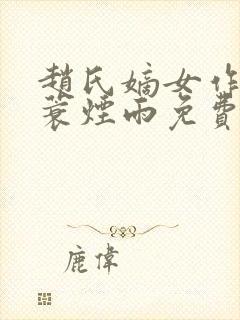 趙氏嫡女作
蓑煙雨免費
鹿偉